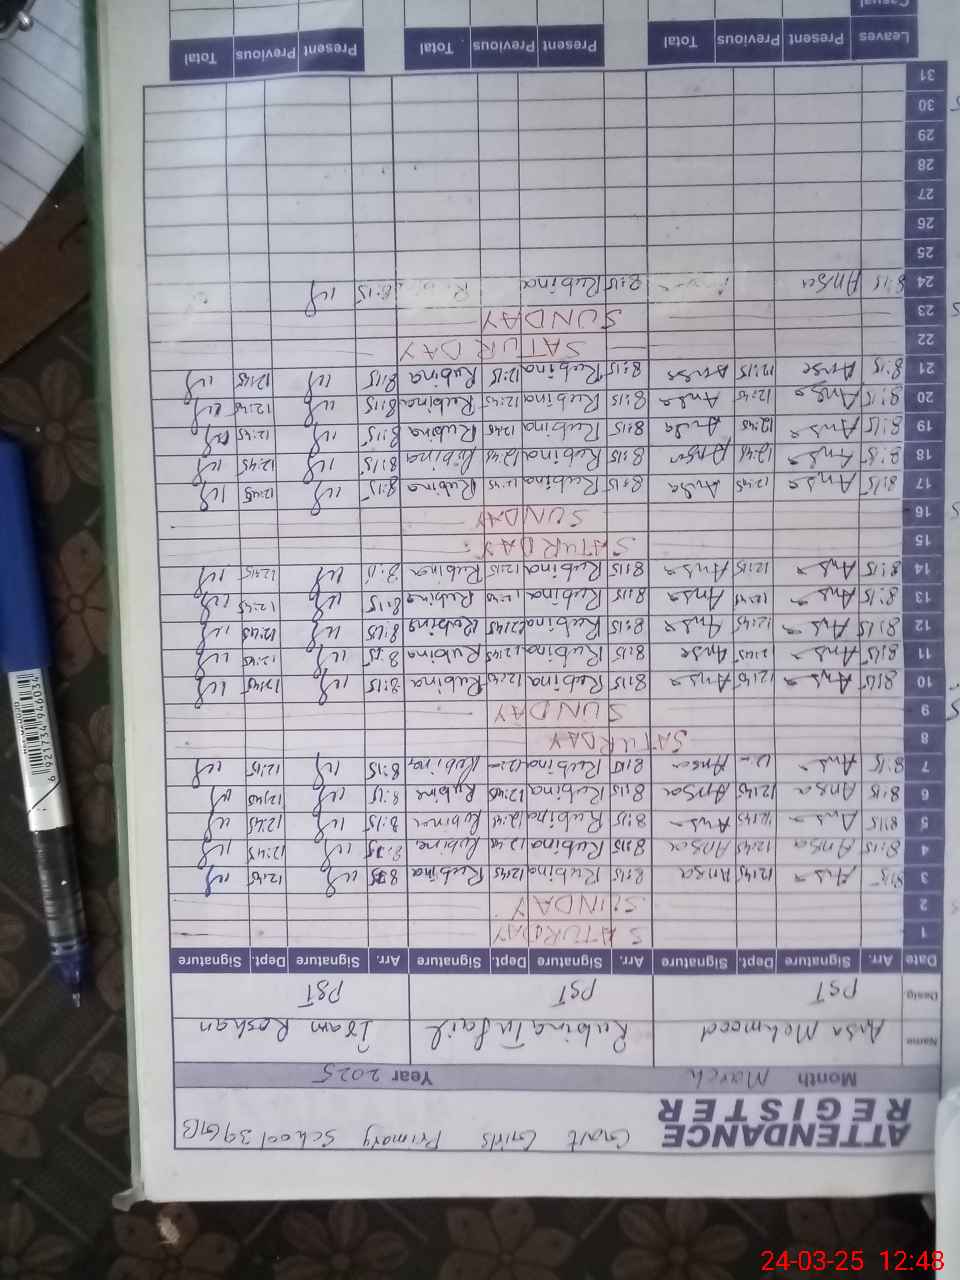 ATTENDANCE REGISTER Govt Girls Primary School 39GB
Month March Year 2025
Name Ansa Mehmood Rubina Tufail Iram Roshan
Desig PST PST PST
Date Arr. Signature Dept. Signature Arr. Signature Dept. Signature Arr. Signature Dept. Signature
1 SATURDAY
2 SUNDAY
3 8:15 Ansa 12:45 Ansa 8:15 Rubina 12:45 Rubina 8:15 12:45
4 8:15 Ansa 12:45 Ansa 8:15 Rubina 12:45 Rubina 8:15 12:45
5 8:15 Ansa 12:45 Ansa 8:15 Rubina 12:45 Rubina 8:15 12:45
6 8:15 Ansa 12:45 Ansa 8:15 Rubina 12:45 Rubina 8:15 12:45
7 8:15 Ansa 12 Ansa 8:15 Rubina 12 Rubina 8:15 12:15
8 SATURDAY
9 SUNDAY
10 8:15 Ansa 12:45 Ansa 8:15 Rubina 12:45 Rubina 8:15 12:45
11 8:15 Ansa 12:45 Ansa 8:15 Rubina 12:45 Rubina 8:15 12:45
12 8:15 Ansa 12:45 Ansa 8:15 Rubina 12:45 Rubina 8:15 12:45
13 8:15 Ansa 12:45 Ansa 8:15 Rubina 12:45 Rubina 8:15 12:45
14 8:15 Ansa 12:15 Ansa 8:15 Rubina 12:15 Rubina 8:15 12:15
15 SATURDAY
16 SUNDAY
17 8:15 Ansa 12:45 Ansa 8:15 Rubina 12:45 Rubina 8:15 12:45
18 8:15 Ansa 12:45 Ansa 8:15 Rubina 12:45 Rubina 8:15 12:45
19 8:15 Ansa 12:45 Ansa 8:15 Rubina 12:45 Rubina 8:15 12:45
20 8:15 Ansa 12:45 Ansa 8:15 Rubina 12:45 Rubina 8:15 12:45
21 8:15 Ansa 12:15 Ansa 8:15 Rubina 12:15 Rubina 8:15 12:45
22 SATURDAY
23 SUNDAY
24 8:15 Ansa 8:15 Rubina Rubina 8:15
25
26
27
28
29
30
31
Leaves Present Previous Total Present Previous Total Present Previous Total
Casual
6921734946034
24-03-25 12:48